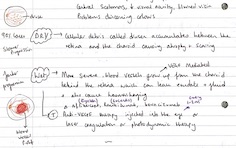 Central scotomas, ↓ visual acuity, blurred vision
Problems discerning colours
drusen
90% cases
DRY
Cellular debris called drusen accumulates between the
retina and the choroid causing atrophy + scarring
VEGF mediated
Wet
More severe. Blood vessels grow up from the choroid
behind the retina which can leak exudate + fluid
+ also cause haemorrhaging
T
Anti-VEGF therapy injected into the eye or
laser coagulation or photodynamic therapy
blood vessel